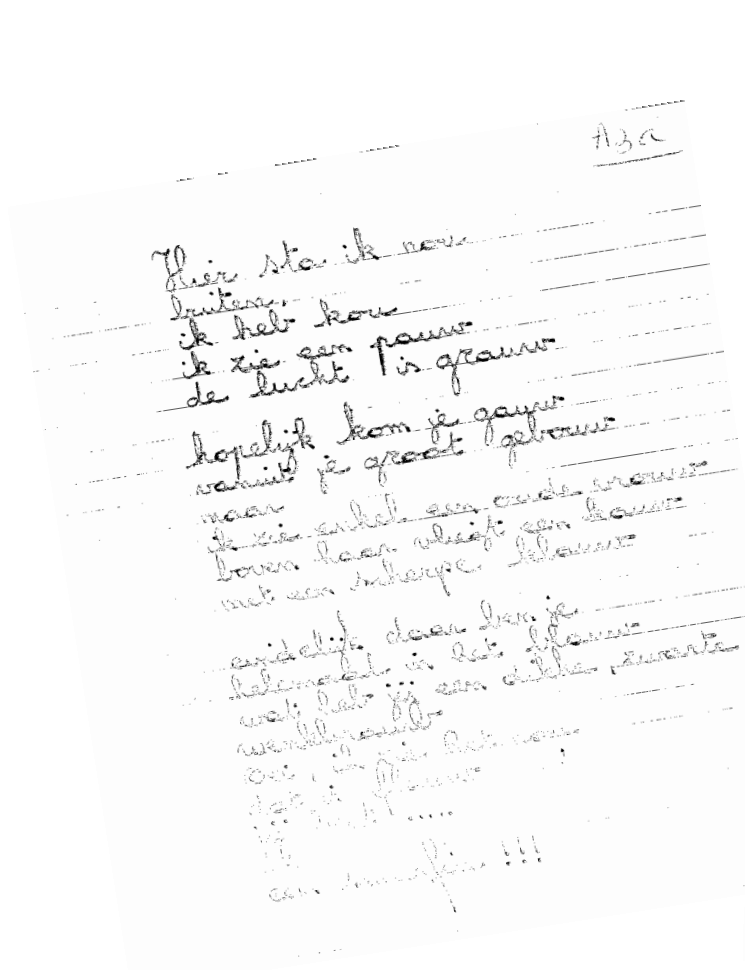 Aza
Hier sta ik nou
buiten,
ik heb kou
ik zie een pauw
de lucht is grauw
hopelijk kom je gauw
vanuit je groot gebouw
maar
ik zie enkel een oude vrouw
boven haar vliegt een kauw
met een scherpe klauw
eindelijk, daar ben je
helemaal in het blauw
wat heb jij een dikke, zwarte
wenkbrauw
Oei, ik zie het nou
dat is flauw
jij bent .....
een !!!